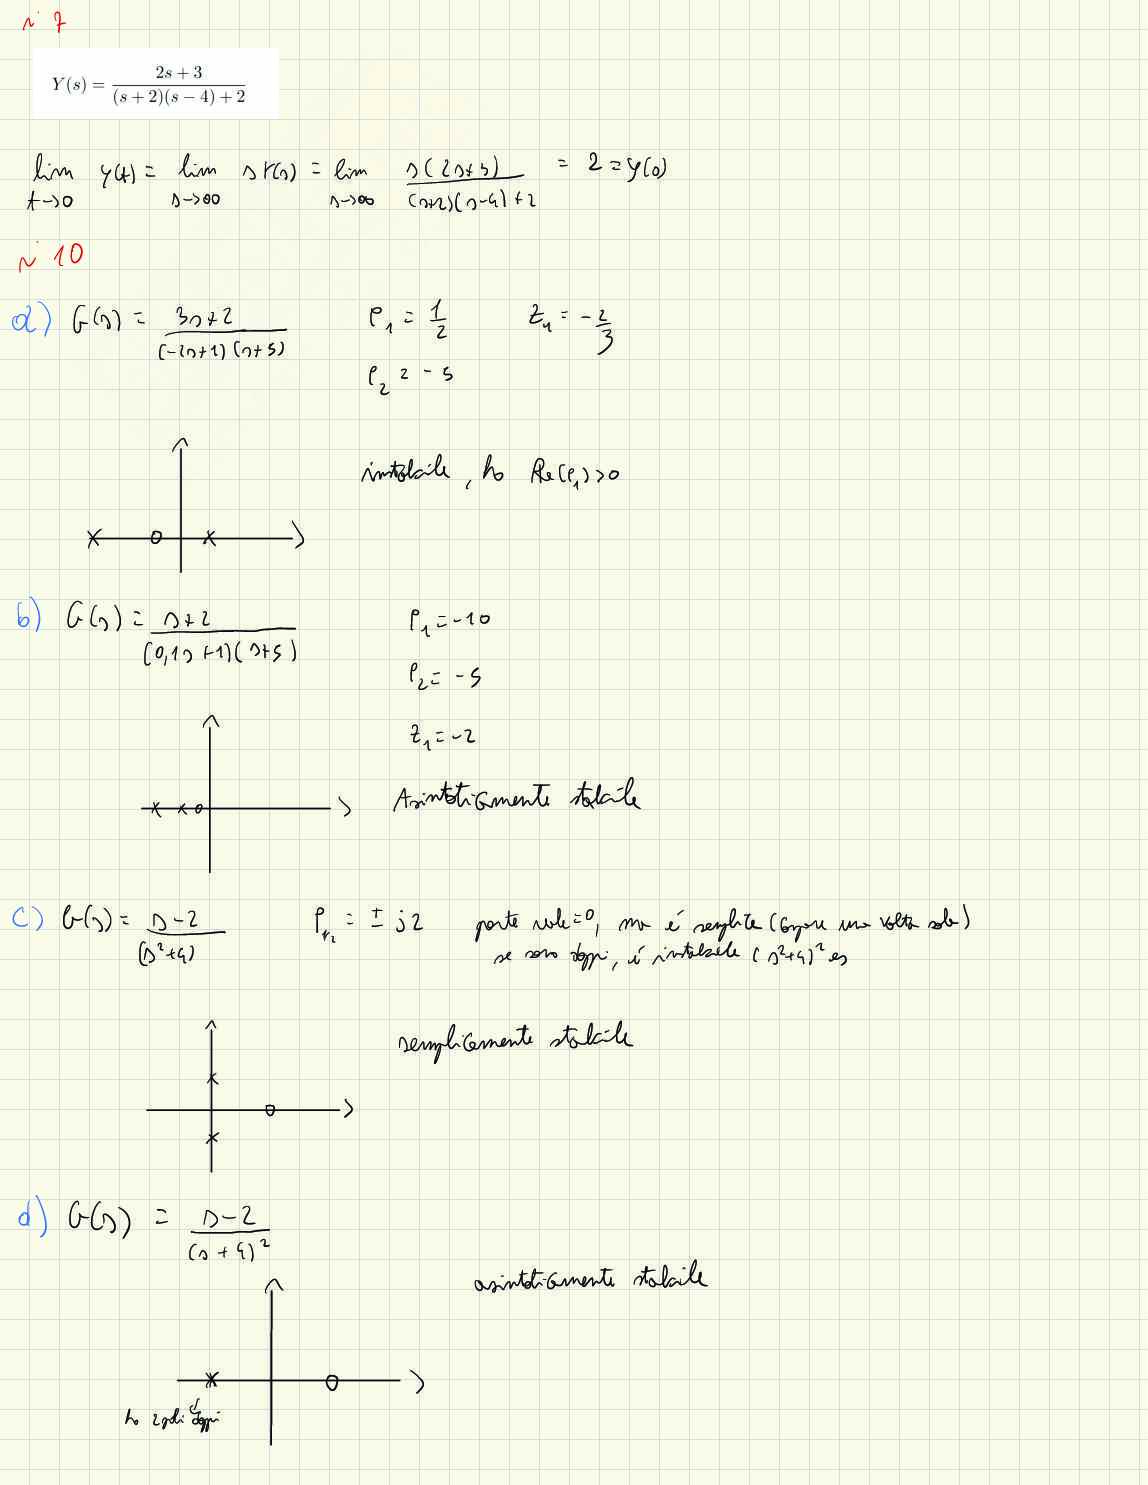 n° 7
Y(s) = \frac{2s + 3}{(s + 2)(s - 4) + 2}
lim_{t→0} y(t) = lim_{s→∞} sY(s) = lim_{s→∞} \frac{s(2s+3)}{(s+2)(s-4)+2} = 2 = y(0)
n° 10
a) G(s) = \frac{3s+2}{(-2s+1)(s+5)} P_1 = \frac{1}{2} Z_1 = -\frac{2}{3}
P_2 = -5
instabile, ho Re(P_1)>0
b) G(s) = \frac{s+2}{(0,1s+1)(s+5)} P_1 = -10
P_2 = -5
Z_1 = -2
Asintoticamente stabile
c) G(s) = \frac{s-2}{(s^2+4)} P_{1,2} = ± j2 parte reale = 0, ma è semplice (compare una volta sola)
se sono doppi, è instabile (s^2+4)^2 es
semplicemente stabile
d) G(s) = \frac{s-2}{(s+4)^2}
asintoticamente stabile
ho 2 poli doppi